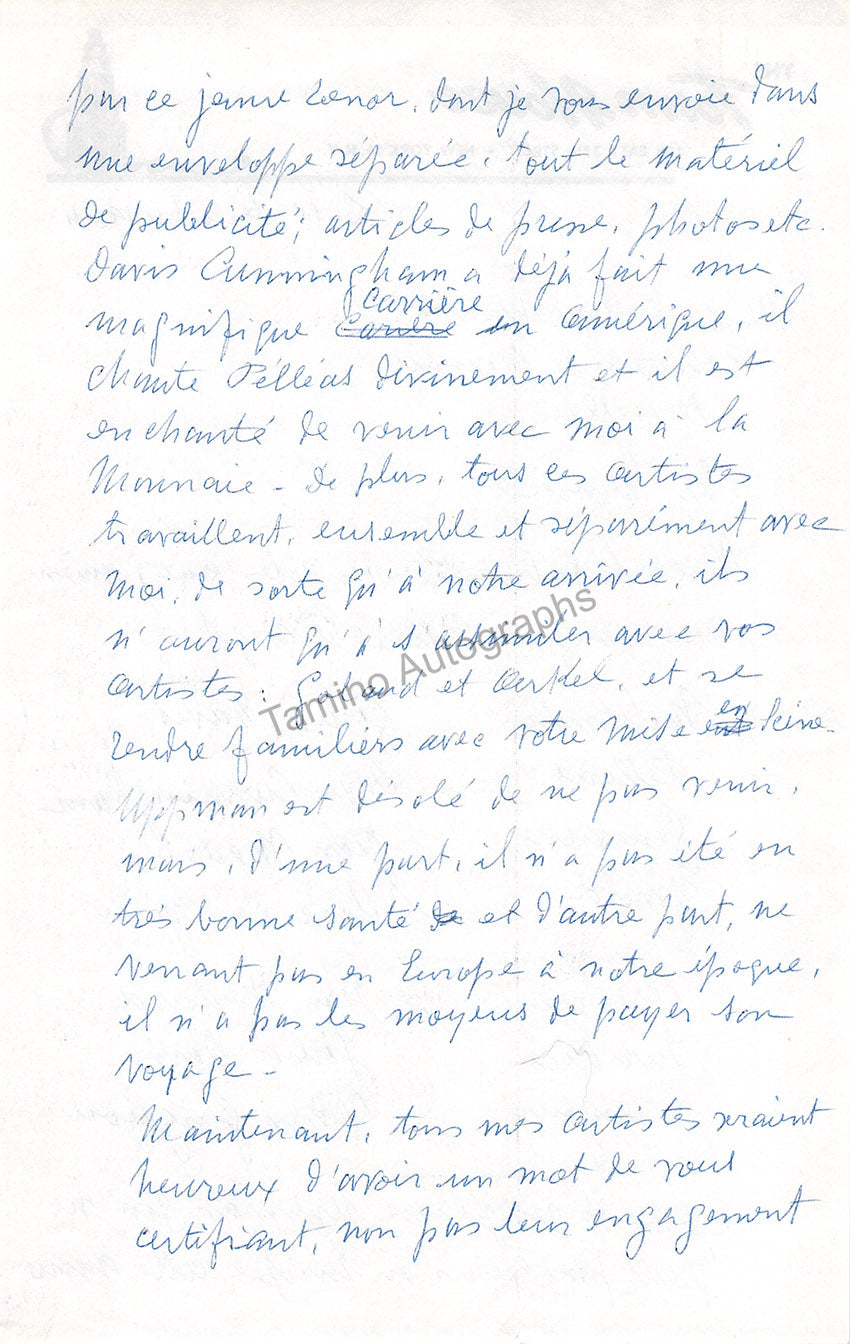 par ce jeune tenor, dont je vous envoie dans
une enveloppe séparée, tout le matériel
de publicité; articles de presse, photos etc.
Davis Cunningham a déjà fait une
carrière
magnifique Carière en Amérique, il
chante Pélléas divinement et il est
enchanté de venir avec moi à la
Monnaie - De plus, tous ces artistes
travaillent, ensemble et séparément avec
moi, de sorte qu'à notre arrivée, ils
n'auront qu'à s'assimiler avec vos
artistes: Golaud et Arkel, et se
en
rendre familiers avec votre mise Scène.
Uppman est désolé de ne pas venir,
mais, d'une part, il n'a pas été en
très bonne santé de et d'autre part, ne
venant pas en Europe à notre époque,
il n'a pas les moyens de payer son
voyage -
Maintenant, tous mes artistes seraient
heureux d'avoir un mot de vous
certifiant, non pas leur engagement
Tamino Autographs